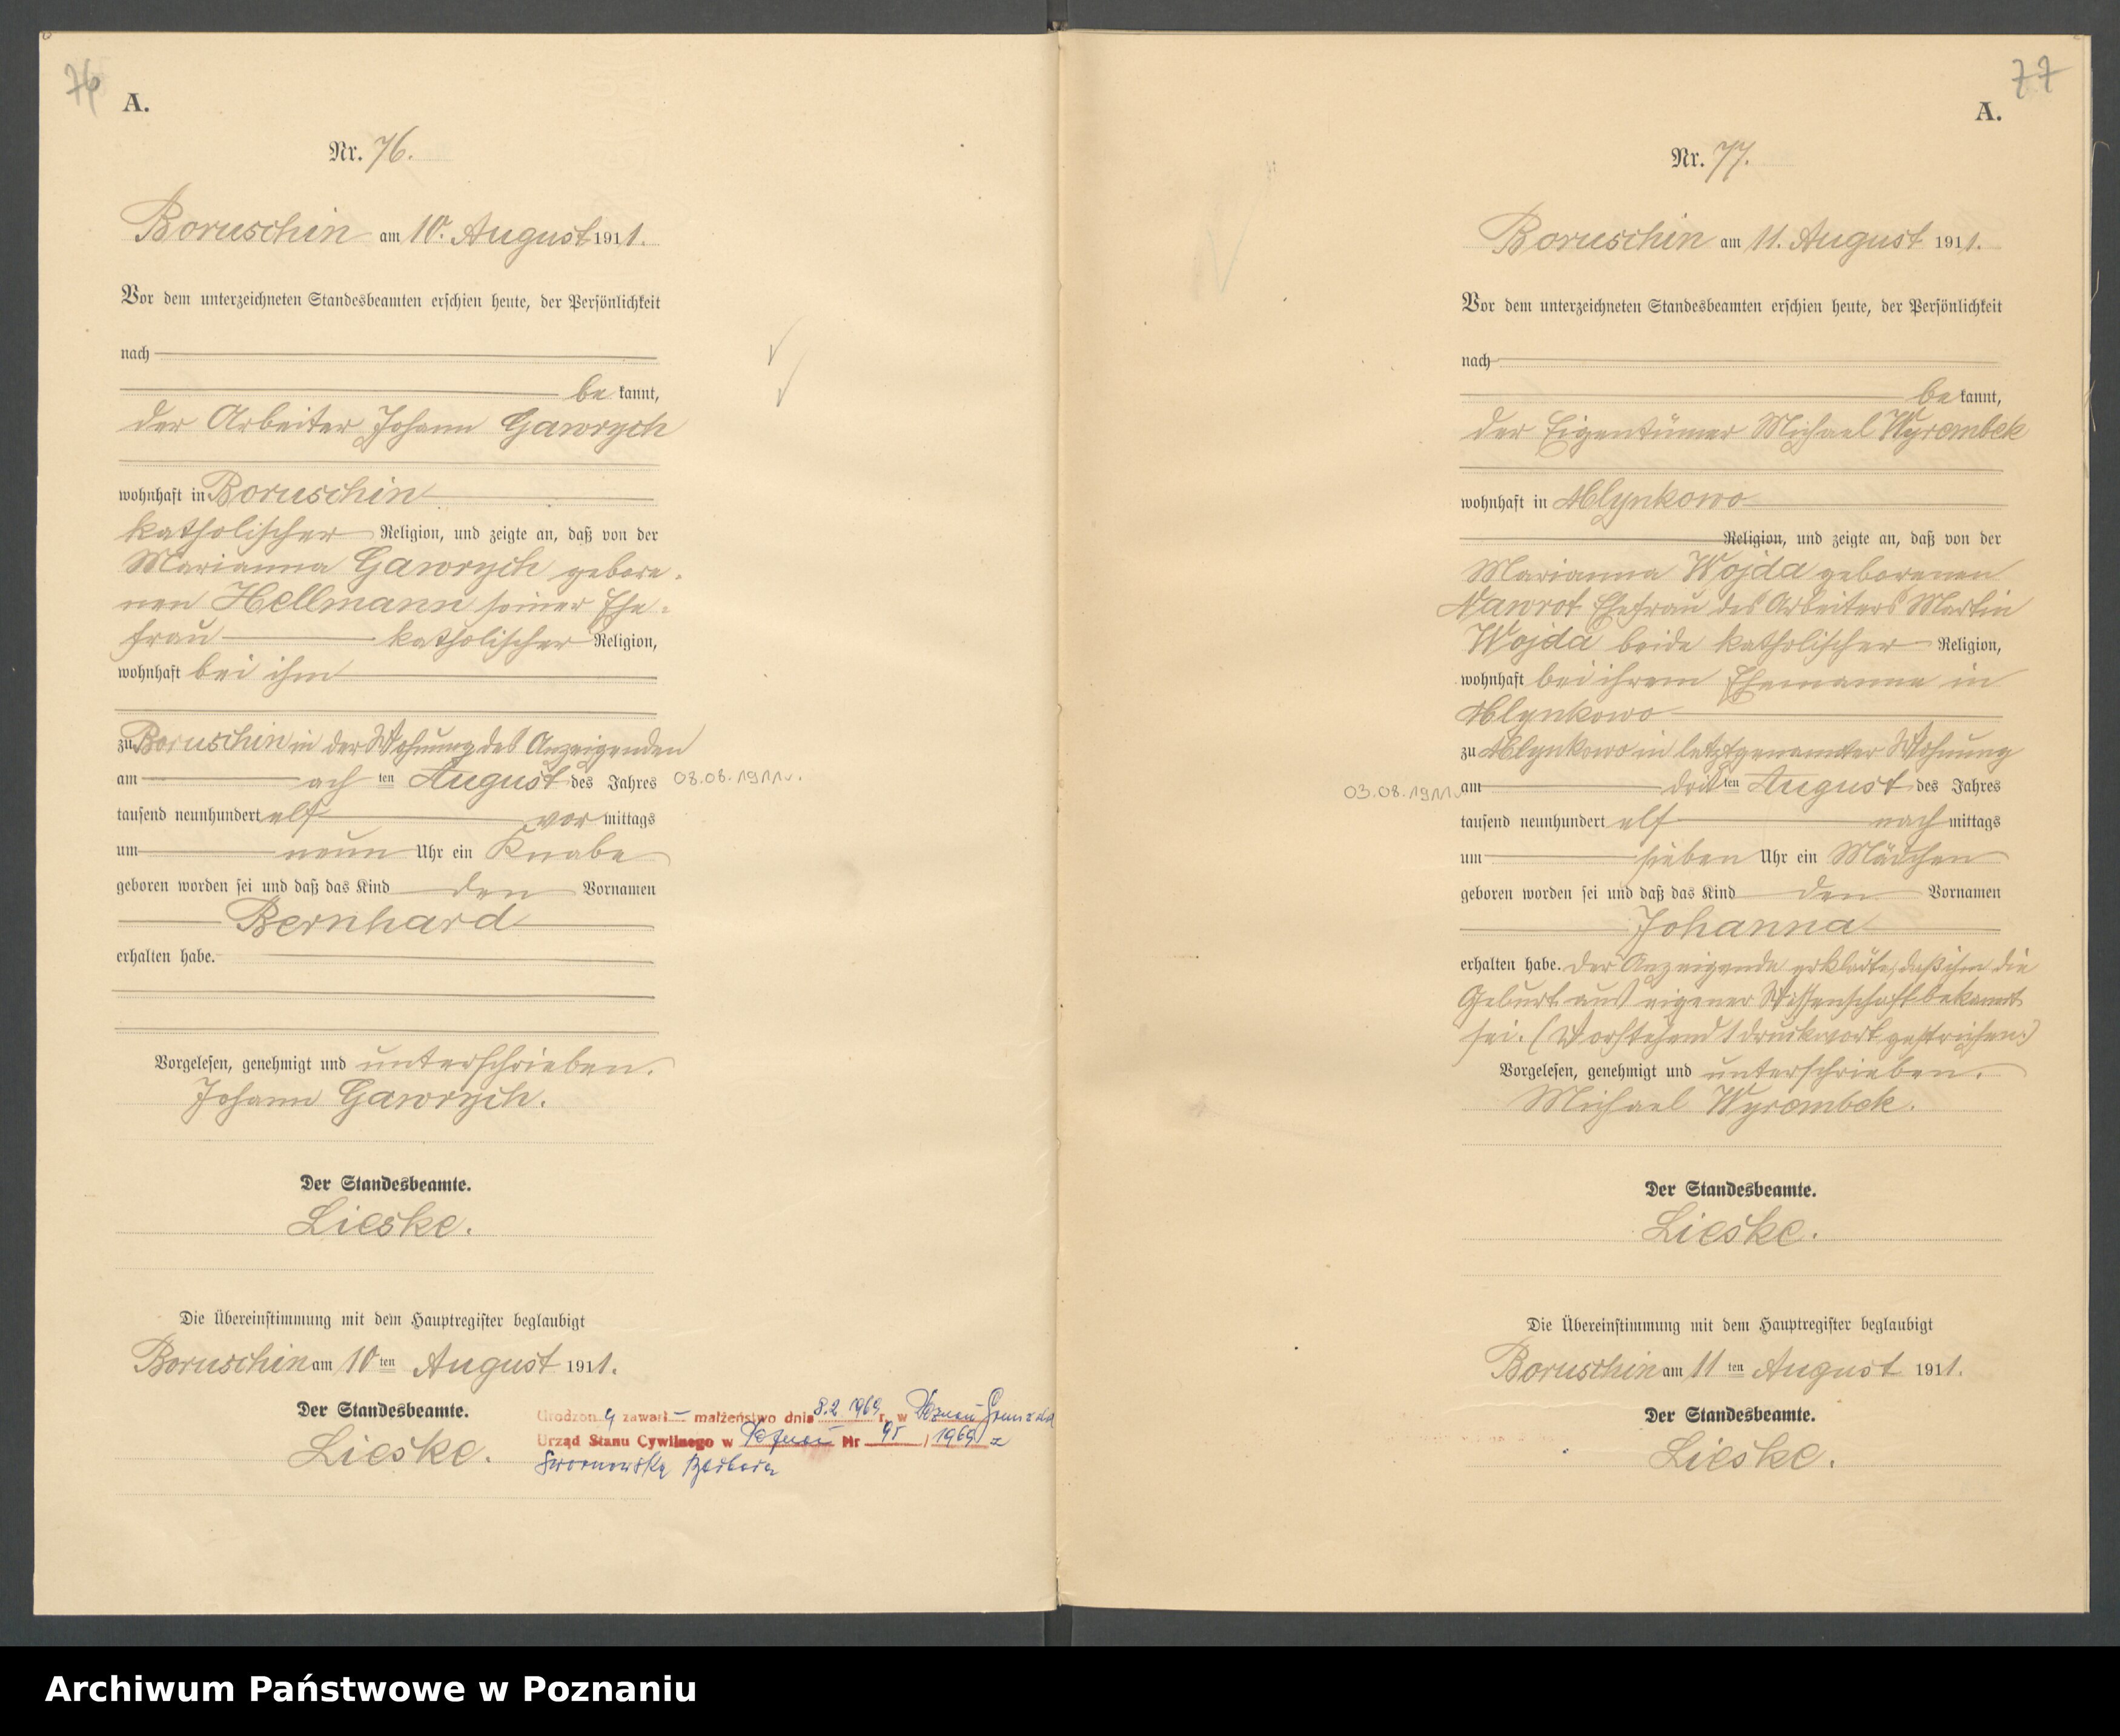 76
A.
Nr. 76.
Boruschin am 10. August 1911.
Vor dem unterzeichneten Standesbeamten erschien heute, der Persönlichkeit
nach
be kannt,
der Arbeiter Johann Gawrych
wohnhaft in Boruschin
katholischer Religion, und zeigte an, daß von der
Marianna Gawrych gebore-
nen Hellmann seiner Ehe-
frau katholischer Religion,
wohnhaft bei ihm
zu Boruschin in der Wohnung des Anzeigenden
am ach ten August des Jahres 08.08.1911r.
tausend neunhundert elf vor mittags
um neun Uhr ein Knabe
geboren worden sei und daß das Kind den Vornamen
Bernhard
erhalten habe.
Vorgelesen, genehmigt und unterschrieben.
Johann Gawrych.
Der Standesbeamte.
Lieske.
Die Übereinstimmung mit dem Hauptregister beglaubigt
Boruschin am 10 ten August 1911.
Der Standesbeamte.
Lieske.
zawarł małżeństwo dnia 8.2 1969 r. w Poznań-
Urząd Stanu Cywilnego w Nr 95 / 1969
77
A.
Nr. 77.
Boruschin am 11. August 1911.
Vor dem unterzeichneten Standesbeamten erschien heute, der Persönlichkeit
nach
be kannt,
der Eigentümer Michael Wyrombek
wohnhaft in Mlynkowo
Religion, und zeigte an, daß von der
Marianna Wojda geborenen
Nawrot Ehefrau des Arbeiters Martin
Wojda beide katholischer Religion,
wohnhaft bei ihrem Ehemanne in
Mlynkowo
zu Mlynkowo in letztgenannter Wohnung
03.08.1911r. am drit ten August des Jahres
tausend neunhundert elf nach mittags
um sieben Uhr ein Mädchen
geboren worden sei und daß das Kind den Vornamen
Johanna
erhalten habe. Der Anzeigende erklärte, daß ihm die
Geburt aus eigener Wissenschaft bekannt
sei. (Vorstehend 1 Druckwort gestrichen.)
Vorgelesen, genehmigt und unterschrieben.
Michael Wyrombek.
Der Standesbeamte.
Lieske.
Die Übereinstimmung mit dem Hauptregister beglaubigt
Boruschin am 11 ten August 1911.
Der Standesbeamte.
Lieske.
Archiwum Państwowe w Poznaniu